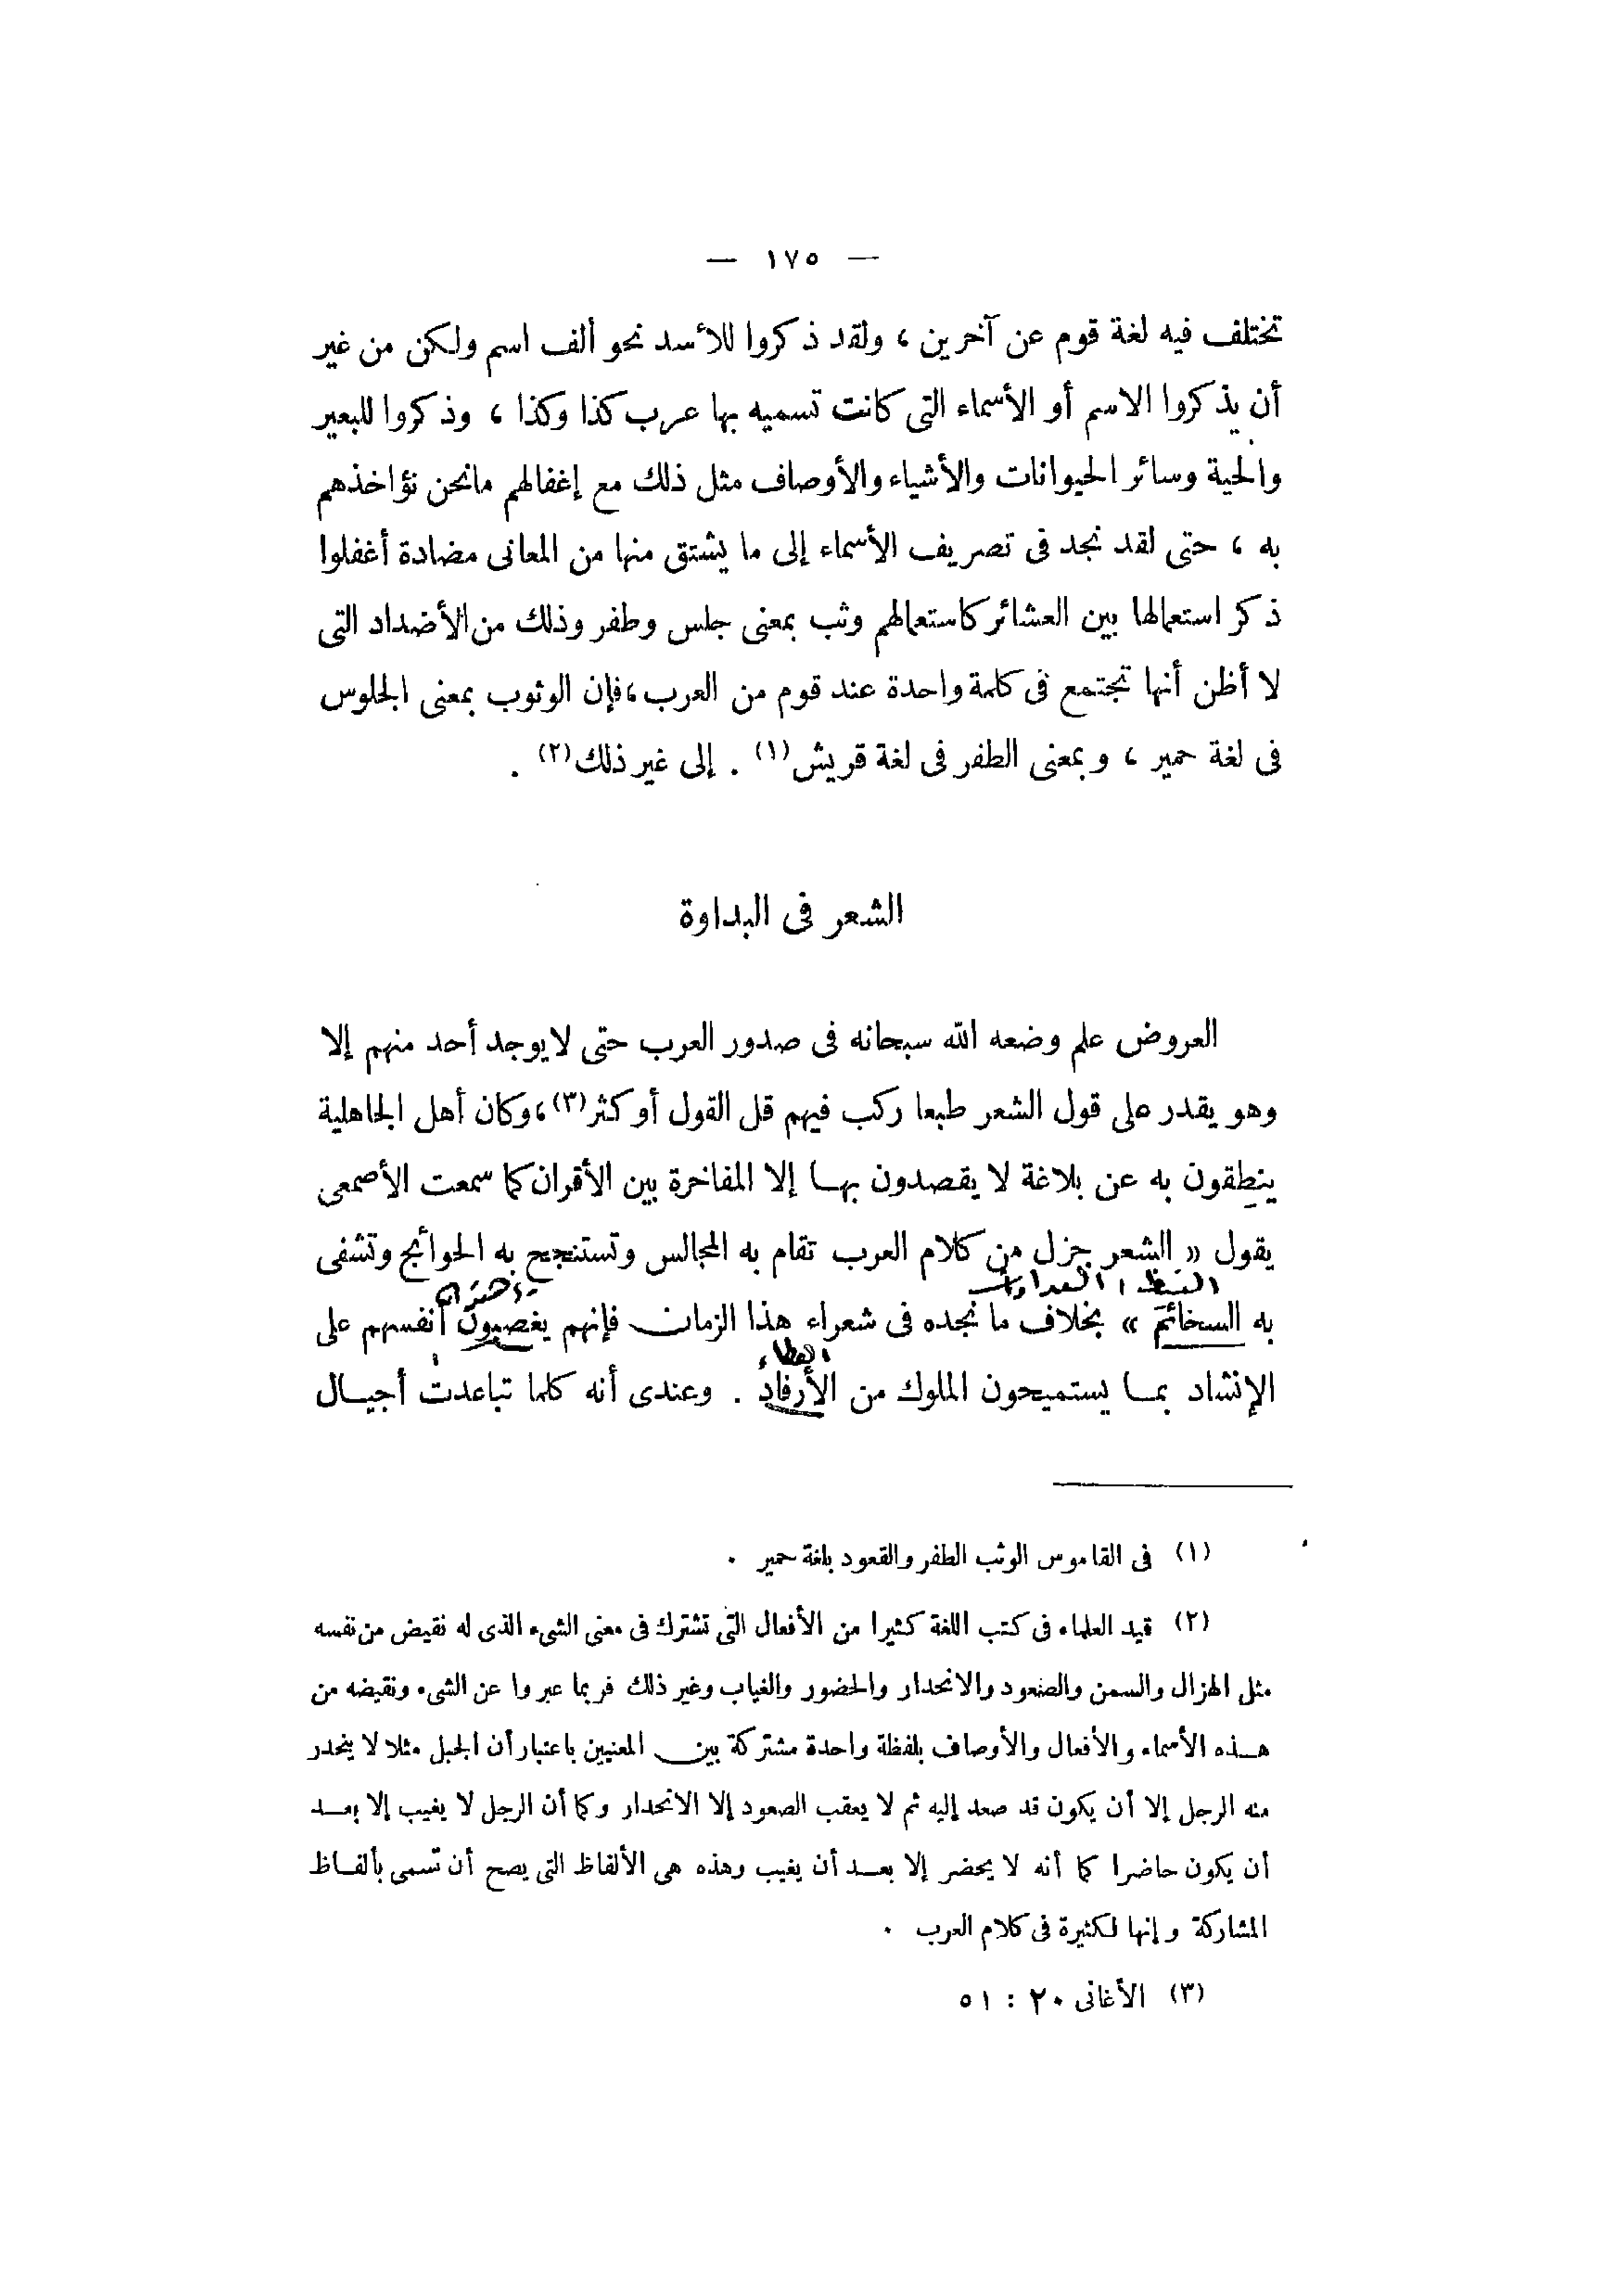 — ١٧٥ —
تختلف فيه لغة قوم عن آخرين ، ولقد ذكروا للأسد نحو ألف اسم ولكن من غير
أن يذكروا الاسم أو الأسماء التى كانت تسميه بها عرب كذا وكذا ، وذكروا للبعير
والحية وسائر الحيوانات والأشياء والأوصاف مثل ذلك مع إغفالهم مانحن نؤاخذهم
به ، حتى لقد نجد فى تصريف الأسماء إلى ما يشتق منها من المعانى مضادة أغفلوا
ذكر استعمالها بين العشائر كاستعمالهم وثب بمعنى جلس وطفر وذلك من الأضداد التى
لا أظن أنها تجتمع فى كلمة واحدة عند قوم من العرب ، فإن الوثوب بمعنى الجلوس
فى لغة حمير ، وبمعنى الطفر فى لغة قريش (١) . إلى غير ذلك (٢) .
الشعر فى البداوة
العروض علم وضعه الله سبحانه فى صدور العرب حتى لايوجد أحد منهم إلا
وهو يقدر على قول الشعر طبعا ركب فيهم قل القول أو كثر (٣) ، وكان أهل الجاهلية
ينطقون به عن بلاغة لا يقصدون بها إلا المفاخرة بين الأقران كما سمعت الأصمعى
يقول « الشعر جزل من كلام العرب تقام به المجالس وتستنجح به الحوائج وتشفى
به السخائم » بخلاف ما نجده فى شعراء هذا الزمان فإنهم يغصبون أنفسهم على
العطاء
الإنشاد بما يستميحون الملوك من الأرفاد . وعندى أنه كلما تباعدت أجيال
(١) فى القاموس الوثب الطفر والقعود بلغة حمير .
(٢) قيد العلماء فى كتب اللغة كثيرا من الأفعال التى تشترك فى معنى الشىء الذى له نقيض من نفسه
مثل الهزال والسمن والصعود والانحدار والحضور والغياب وغير ذلك فربما عبروا عن الشىء ونقيضه من
هذه الأسماء والأفعال والأوصاف بلفظة واحدة مشتركة بين المعنيين باعتبار أن الجبل مثلا لا ينحدر
منه الرجل إلا أن يكون قد صعد إليه ثم لا يعقب الصعود إلا الانحدار وكما أن الرجل لا يغيب إلا بعد
أن يكون حاضرا كما أنه لا يحضر إلا بعد أن يغيب وهذه هى الألفاظ التى يصح أن تسمى بألفاظ
المشاركة وإنها لكثيرة فى كلام العرب .
(٣) الأغانى ٢٠ : ٥١